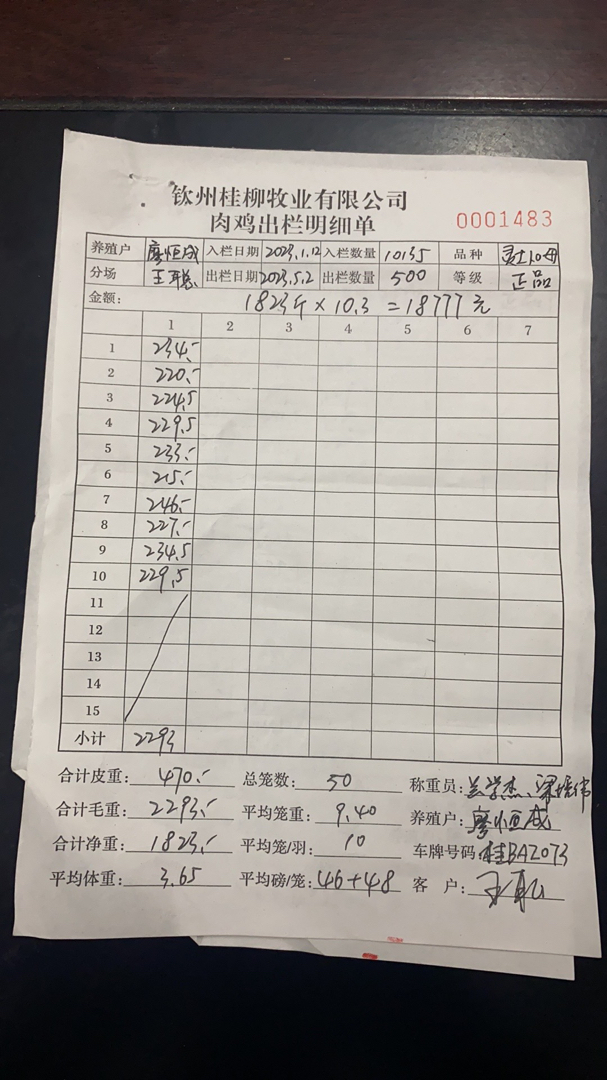 钦州桂柳牧业有限公司
肉鸡出栏明细单
0001483
养殖户 廖恒成 入栏日期 2023.1.12 入栏数量 10135 品种
分场 王聪 出栏日期 2023.5.2 出栏数量 500 等级 正品
金额: 1823斤×10.3=18777元
1 2 3 4 5 6 7
1 234.-
2 220.-
3 224.5
4 229.5
5 233.-
6 215.-
7 246.-
8 227.-
9 234.5
10 229.5
11
12
13
14
15
小计 2293
合计皮重: 470.- 总笼数: 50 称重员:
合计毛重: 2293.- 平均笼重: 9.40 养殖户: 廖恒成
合计净重: 1823.- 平均笼/羽: 10 车牌号码: 桂BAZ073
平均体重: 3.65 平均磅/笼: 46+48 客 户: